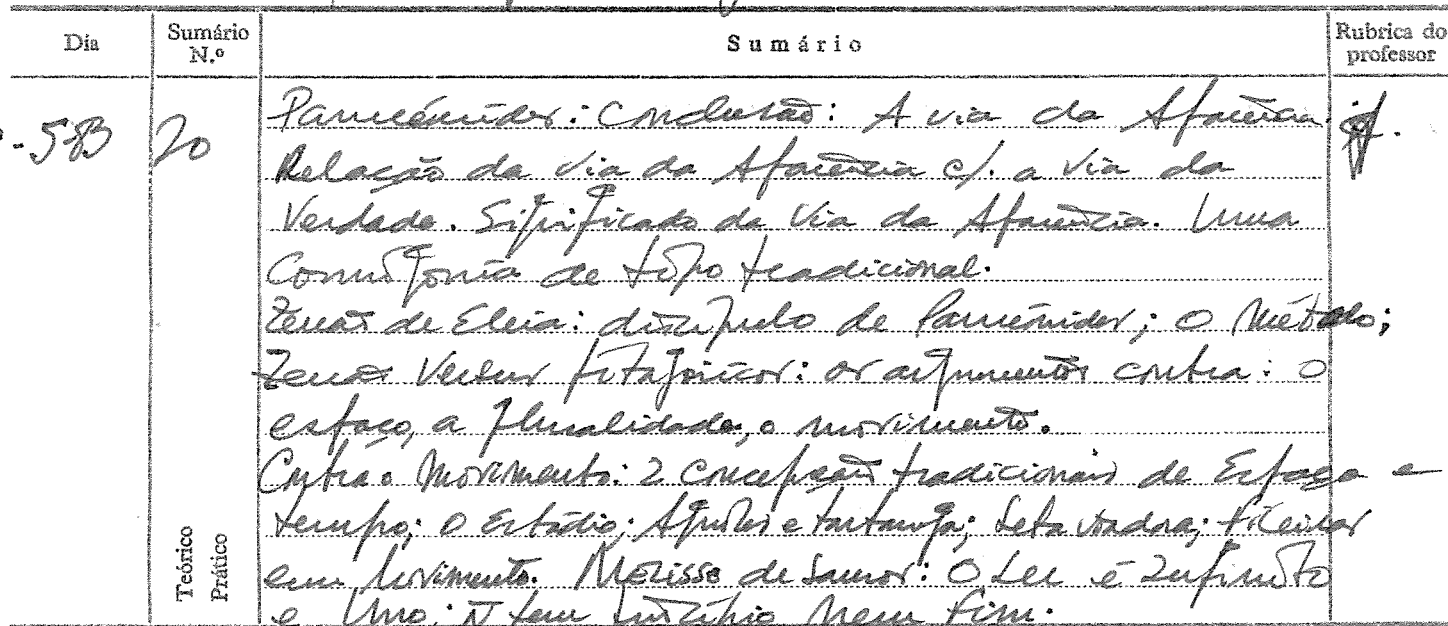 Dia
Sumário N.º
Sumário
Rubrica do professor
-5-83
20
Parménides: Conclusão: A via da Aparência.
Relação da via da Aparência c/. a via da
Verdade. Significado da Via da Aparência. Uma
Cosmogonia de tipo tradicional.
Zenão de Eleia: discípulo de Parménides; O Método;
Zenão versus pitagóricos: os argumentos contra: o
espaço, a pluralidade, o movimento.
Contra o Movimento: 2 concepções tradicionais de Espaço e
tempo; O Estádio; Aquiles e tartaruga; Seta voadora; fileiras
em Movimento. Melisso de Samos: O Ser é Infinito
e Uno: Ñ tem princípio nem fim.
Teórico
Prático